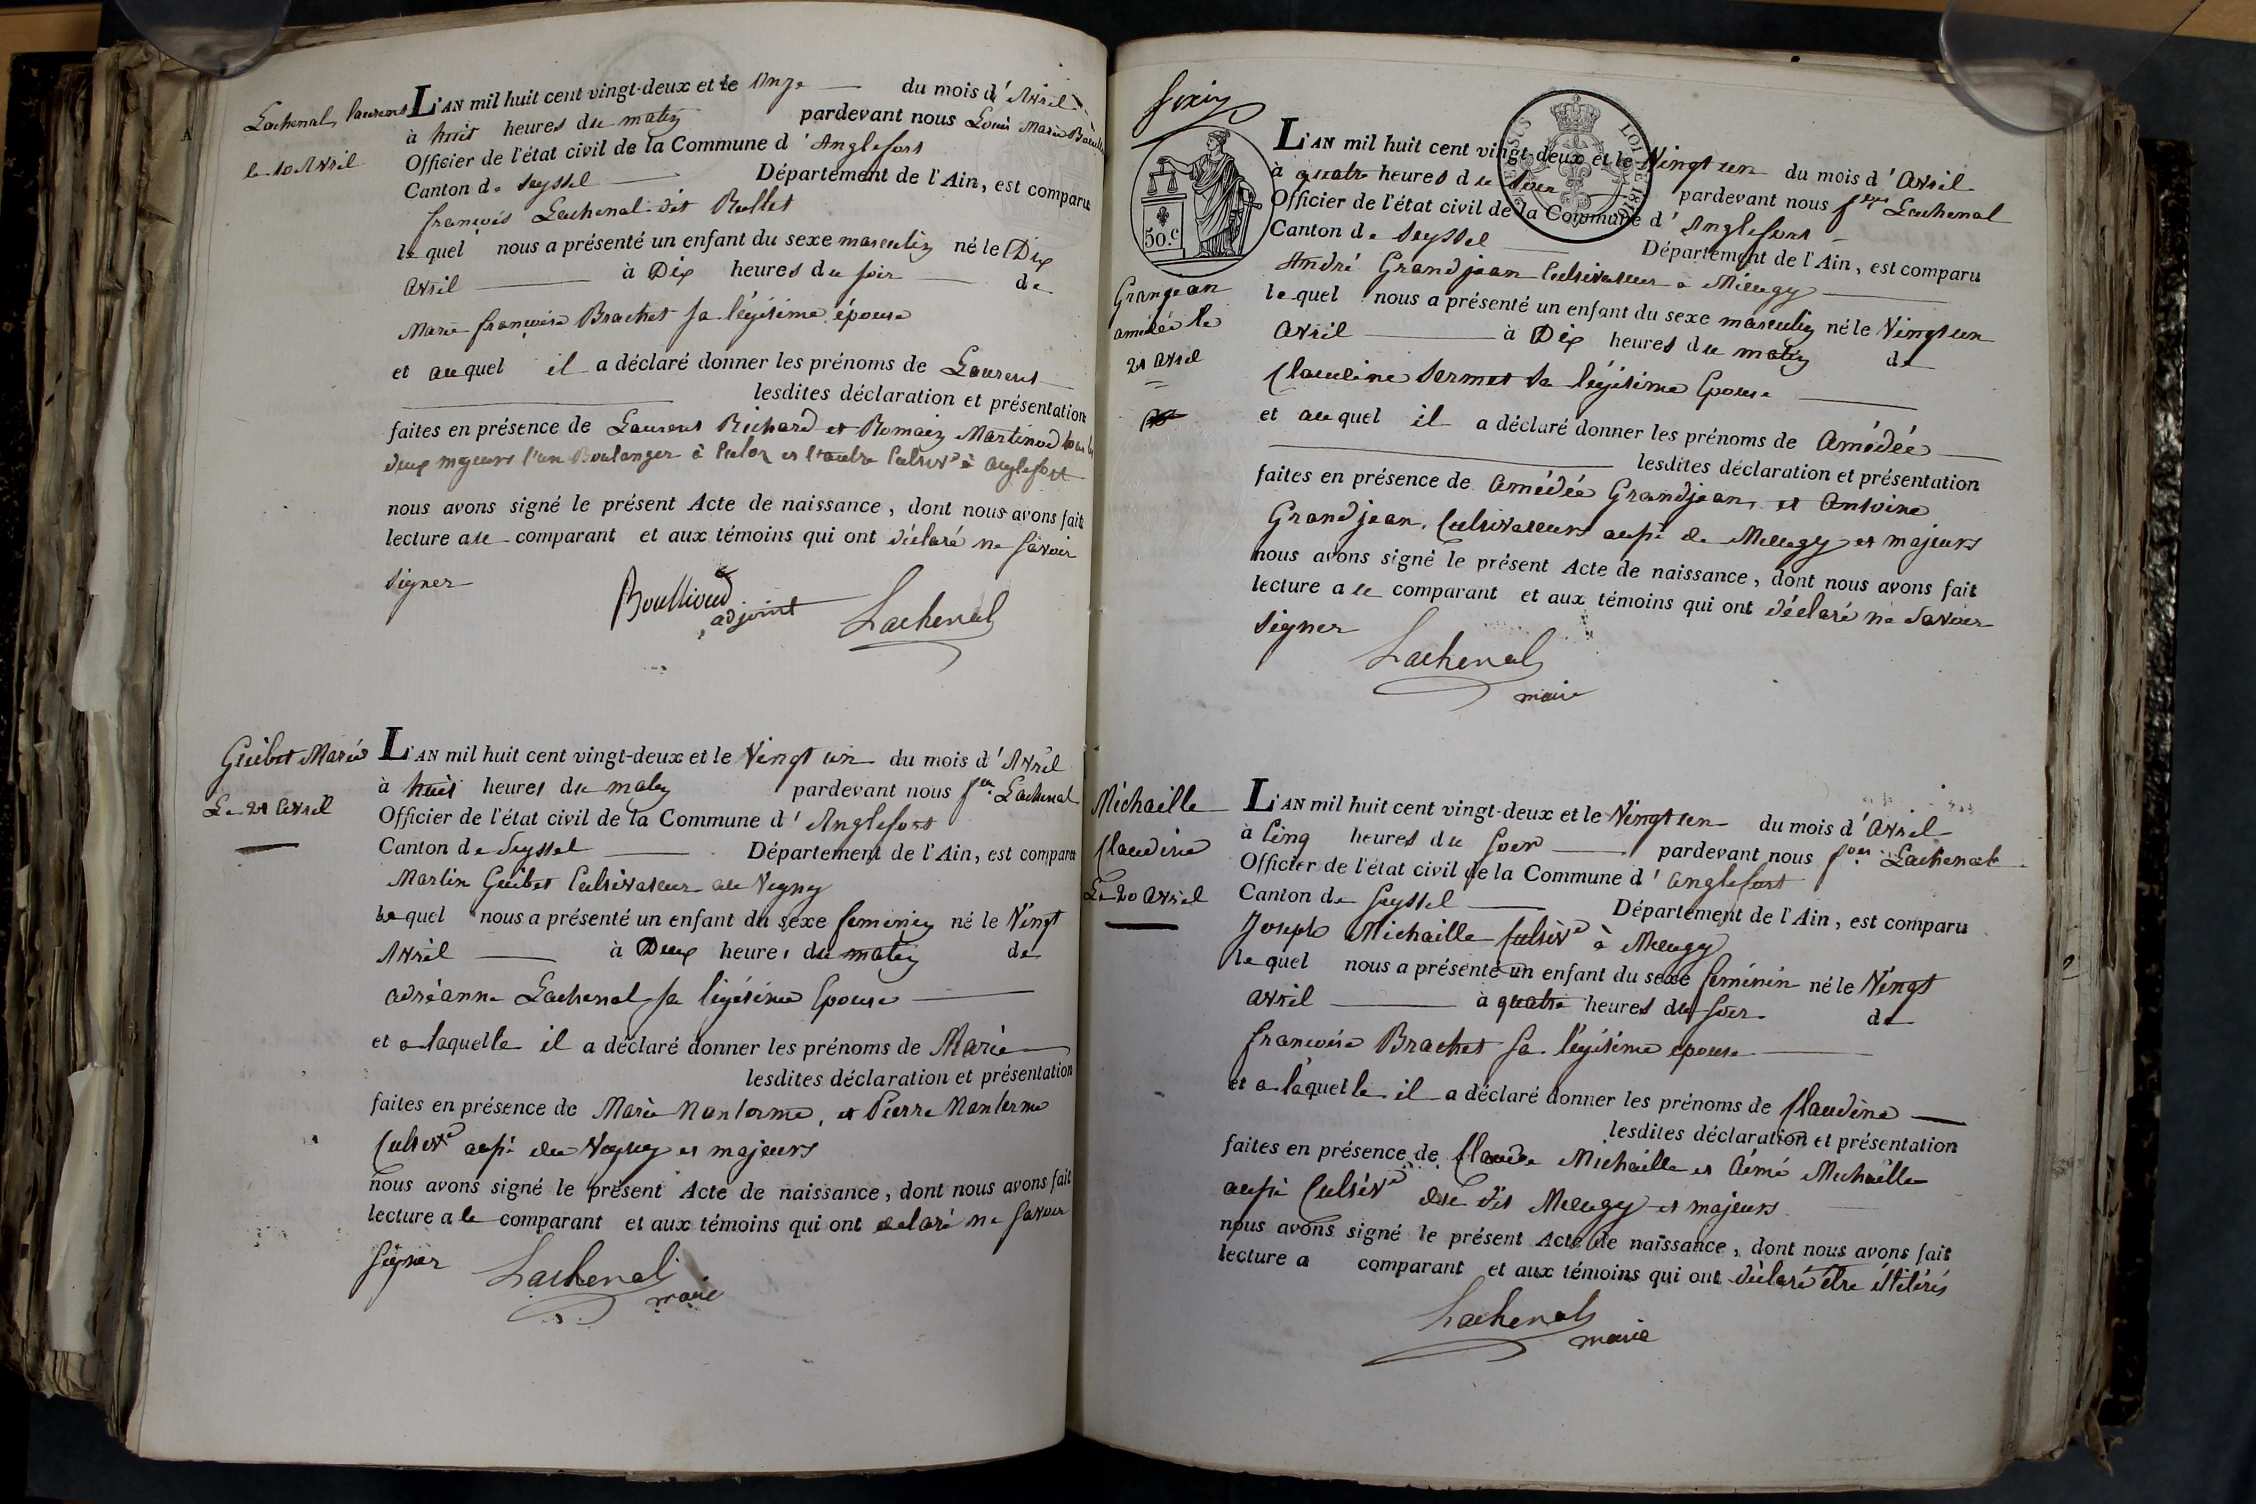 Lachenal, laurent
le 10 Avril
L'AN mil huit cent vingt-deux et le Onze du mois d'Avril
à huit heures du matin pardevant nous Louis Marie
Officier de l'état civil de la Commune d'Anglefort
Canton de Seyssel Département de l'Ain, est comparu
françois Lachenal dit Rollet
lequel nous a présenté un enfant du sexe masculin né le Dix
avril à Dix heures du soir de
Marie françoise Brachet sa légitime épouse
et auquel il a déclaré donner les prénoms de Laurent
lesdites déclaration et présentation
faites en présence de Laurent Richard et Romain Martinod tous les
deux majeurs l'un Boulanger à Culoz et l'autre Cultivr à anglefort
nous avons signé le présent Acte de naissance, dont nous avons fait
lecture au comparant et aux témoins qui ont déclaré ne savoir
signer
Boullioud
adjoint
Lachenal
Guibet Marie
Le 21 Avril
L'AN mil huit cent vingt-deux et le Vingt un du mois d'Avril
à huit heures du matin pardevant nous Lachenal
Officier de l'état civil de la Commune d'Anglefort
Canton de Seyssel Département de l'Ain, est comparu
Martin Guibet Cultivateur au
lequel nous a présenté un enfant du sexe feminin né le Vingt
Avril à Deux heures du matin de
adréanne Lachenal sa légitime Epouse
et a laquelle il a déclaré donner les prénoms de Marie
lesdites déclaration et présentation
faites en présence de Marie Nanterme, et Pierre Nanterme
Cultivr aussi du et majeurs
nous avons signé le présent Acte de naissance, dont nous avons fait
lecture a le comparant et aux témoins qui ont declaré ne savoir
signer
Lachenal
maire
50.c
LOI DE 1816
Grangean
amédée le
21 avril
L'AN mil huit cent vingt-deux et le Vingt un du mois d'avril
à quatre heures du soir pardevant nous Lachenal
Officier de l'état civil de la Commune d'Anglefort
Canton de Seyssel Département de l'Ain, est comparu
André Grandjean Cultivateur à Mieugy
lequel nous a présenté un enfant du sexe masculin né le Vingt un
avril à Dix heures du matin de
Claudine Sermet Sa légitime Epouse
et auquel il a déclaré donner les prénoms de Amédée
lesdites déclaration et présentation
faites en présence de Amédée Grandjean, et Antoine
Grandjean, Cultivateurs aussi de Mieugy et majeurs
nous avons signé le présent Acte de naissance, dont nous avons fait
lecture a le comparant et aux témoins qui ont déclaré ne Savoir
signer
Lachenal
maire
Michaille
Claudine
Le 20 avril
L'AN mil huit cent vingt-deux et le Vingt un du mois d'avril
à Cinq heures du soir pardevant nous Lachenal
Officier de l'état civil de la Commune d'anglefort
Canton de Seyssel Département de l'Ain, est comparu
Joseph Michaille Cultivr à Mieugy
lequel nous a présenté un enfant du sexe féminin né le Vingt
avril à quatre heures du soir de
francoise Brachet sa légitime epouse
et a laquelle il a déclaré donner les prénoms de Claudine
lesdites déclaration et présentation
faites en présence de Claude Michaille et Aimé Michaille
aussi Cultivr du dit Mieugy et majeurs
nous avons signé le présent Acte de naissance, dont nous avons fait
lecture a comparant et aux témoins qui ont déclaré être illitérés
Lachenal
maire